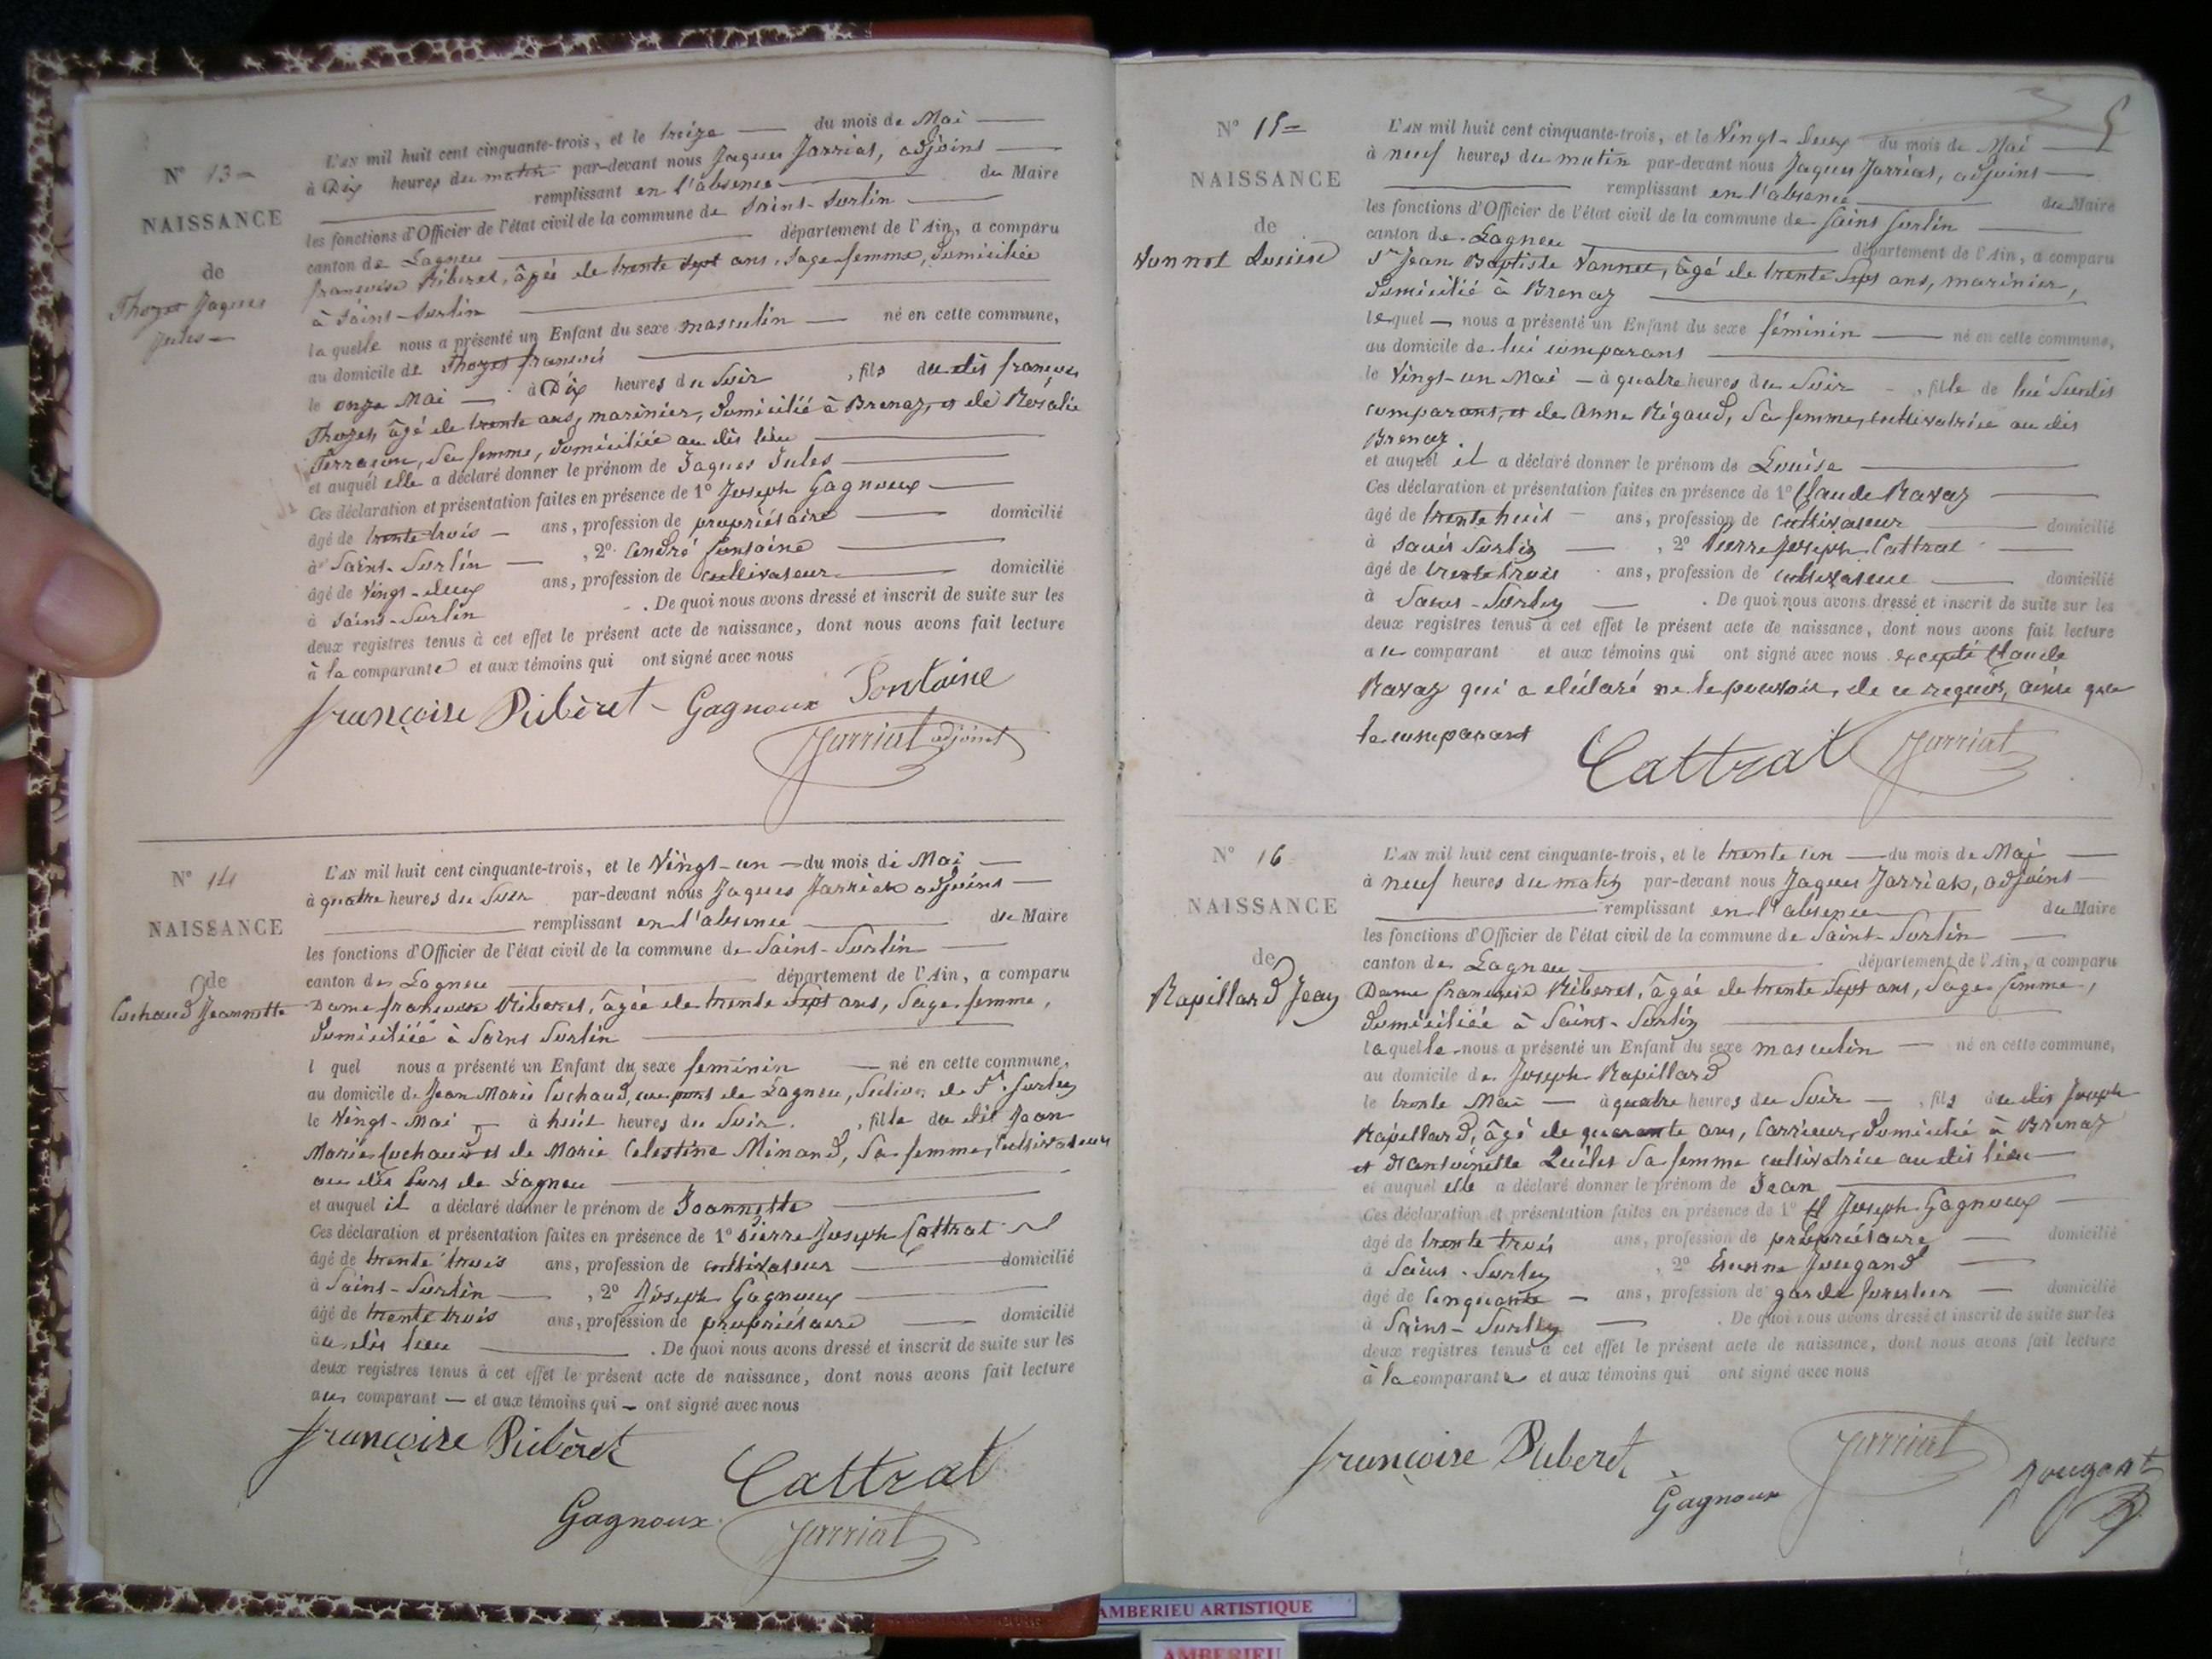 N° 13 =
NAISSANCE
de
Thozet Jaques
Jules —
L'AN mil huit cent cinquante-trois, et le treize — du mois de Mai —
à Dix heures du matin par-devant nous Jaques Jarriat, adjoint —
remplissant en l'absence — du Maire
les fonctions d'Officier de l'état civil de la commune de Saint-Sorlin —
canton de Lagneu — département de l'Ain, a comparu
françoise Riberet, âgée de trente sept ans, Sage-femme, domiciliée
à Saint-Sorlin —
laquelle nous a présenté un Enfant du sexe masculin — né en cette commune,
au domicile de Thozet françois —
le onze Mai — à Dix heures du Soir, fils du dit françois
Thozet, âgé de trente ans, marinier, domicilié à Brenaz, et de Rosalie
Terrason, Sa femme, domiciliée au dit lieu —
et auquel elle a déclaré donner le prénom de Jaques Jules —
Ces déclaration et présentation faites en présence de 1° Joseph Gagnoux —
âgé de trente trois — ans, profession de propriétaire — domicilié
à Saint-Sorlin — , 2° André fontaine —
âgé de Vingt-deux ans, profession de cultivateur — domicilié
à Saint-Sorlin - . De quoi nous avons dressé et inscrit de suite sur les
deux registres tenus à cet effet le présent acte de naissance, dont nous avons fait lecture
à la comparante et aux témoins qui ont signé avec nous
françoise Ribèret - Gagnoux Fontaine
Jarriat adjoint
N° 14
NAISSANCE
de
Cochaud Jeannette
L'AN mil huit cent cinquante-trois, et le Vingt-un — du mois de Mai —
à quatre heures du Soir par-devant nous Jaques Jarriat adjoint —
remplissant en l'absence — du Maire
les fonctions d'Officier de l'état civil de la commune de Saint-Sorlin —
canton de Lagneu — département de l'Ain, a comparu
Dame françoise Riberet, âgée de trente Sept ans, Sage-femme,
domiciliée à Saint Sorlin —
l quel nous a présenté un Enfant du sexe feminin — né en cette commune,
au domicile de Jean Marie Cochaud, au pont de Lagneu, Section de St. Sorlin
le Vingt-Mai — à huit heures du Soir. , fille du dit Jean
Marie Cochaud et de Marie Celestine Minand, Sa femme, Cultivateurs
au dit Port de Lagneu —
et auquel il a déclaré donner le prénom de Jeannette —
Ces déclaration et présentation faites en présence de 1° Pierre Joseph Cattrat
âgé de trente trois ans, profession de cultivateur — domicilié
à Saint-Sorlin — , 2° Joseph Gagnoux —
âgé de trente trois ans, profession de propriétaire — domicilié
au dit lieu — . De quoi nous avons dressé et inscrit de suite sur les
deux registres tenus à cet effet le présent acte de naissance, dont nous avons fait lecture
au comparant — et aux témoins qui — ont signé avec nous
françoise Ribèret
Cattrat
Gagnoux
Jarriat
5
N° 15 =
NAISSANCE
de
Vannet Louise
L'AN mil huit cent cinquante-trois, et le Vingt-Deux du mois de Mai —
à neuf heures du matin par-devant nous Jaques Jarriat, adjoint —
remplissant en l'absence — du Maire
les fonctions d'Officier de l'état civil de la commune de Saint Sorlin —
canton de Lagneu — département de l'Ain, a comparu
Sr Jean Baptiste Vannet, âgé de trente-Sept ans, marinier,
domicilié à Brenaz —
lequel — nous a présenté un Enfant du sexe féminin — né en cette commune,
au domicile de lui comparant —
le Vingt-un Mai — à quatre heures du Soir - , fille de lui Susdit
comparant, et de Anne Rigaud, Sa femme, cultivatrice au dit
Brenaz.
et auquel il a déclaré donner le prénom de Louise —
Ces déclaration et présentation faites en présence de 1° Claude Ravaz —
âgé de trente huit — ans, profession de cultivateur — domicilié
à Saint Sorlin — , 2° Pierre Joseph Cattrat —
âgé de trente trois ans, profession de cultivateur — domicilié
à Saint-Sorlin — . De quoi nous avons dressé et inscrit de suite sur les
deux registres tenus à cet effet le présent acte de naissance, dont nous avons fait lecture
au comparant et aux témoins qui ont signé avec nous excepté Claude
Ravaz qui a déclaré ne le pouvoir, de ce requis, ainsi que
le comparant
Cattrat Jarriat
N° 16
NAISSANCE
de
Rapillard Jean
L'AN mil huit cent cinquante-trois, et le trente un — du mois de Mai —
à neuf heures du matin par-devant nous Jaques Jarriat, adjoint —
remplissant en l'absence — du Maire
les fonctions d'Officier de l'état civil de la commune de Saint-Sorlin —
canton de Lagneu — département de l'Ain, a comparu
Dame françoise Riberet, âgée de trente Sept ans, Sage femme,
domiciliée à Saint-Sorlin —
laquelle nous a présenté un Enfant du sexe masculin — né en cette commune,
au domicile de Joseph Rapillard
le trente Mai — à quatre heures du Soir — , fils du dit Joseph
Rapillard, âgé de quarante ans, Carrieur, domicilié à Brenaz
et d'antoinette Sa femme cultivatrice au dit lieu —
et auquel elle a déclaré donner le prénom de Jean —
Ces déclaration et présentation faites en présence de 1° Joseph Gagnoux —
âgé de trente trois ans, profession de propriétaire — domicilié
à Saint-Sorlin , 2° Etienne Jougand —
âgé de Cinquante — ans, profession de garde forestier — domicilié
à Saint-Sorlin — . De quoi nous avons dressé et inscrit de suite sur les
deux registres tenus à cet effet le présent acte de naissance, dont nous avons fait lecture
à la comparante et aux témoins qui ont signé avec nous
françoise Riberet
Gagnoux
Jarriat
Jougant
AMBERIEU ARTISTIQUE
AMBERIEU